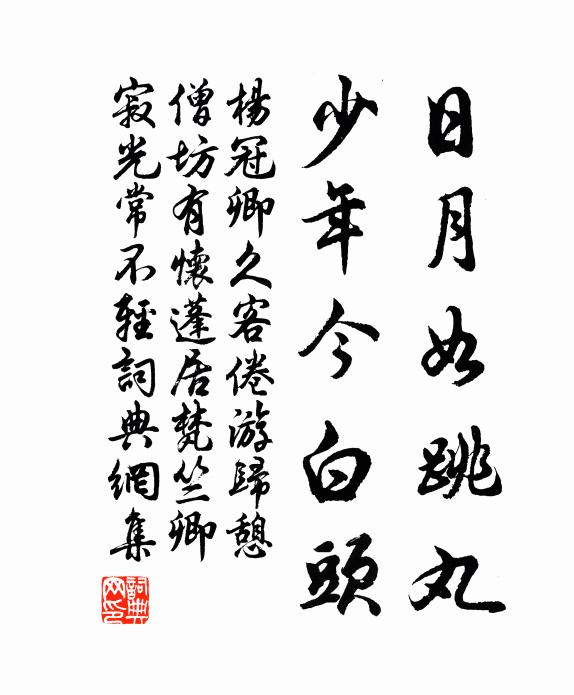 日月如跳丸
少年今白頭
楊冠卿久客倦游歸憩
僧坊有懷蓬居梵竺卿
寂光常不輕詞典網集
詞典網印